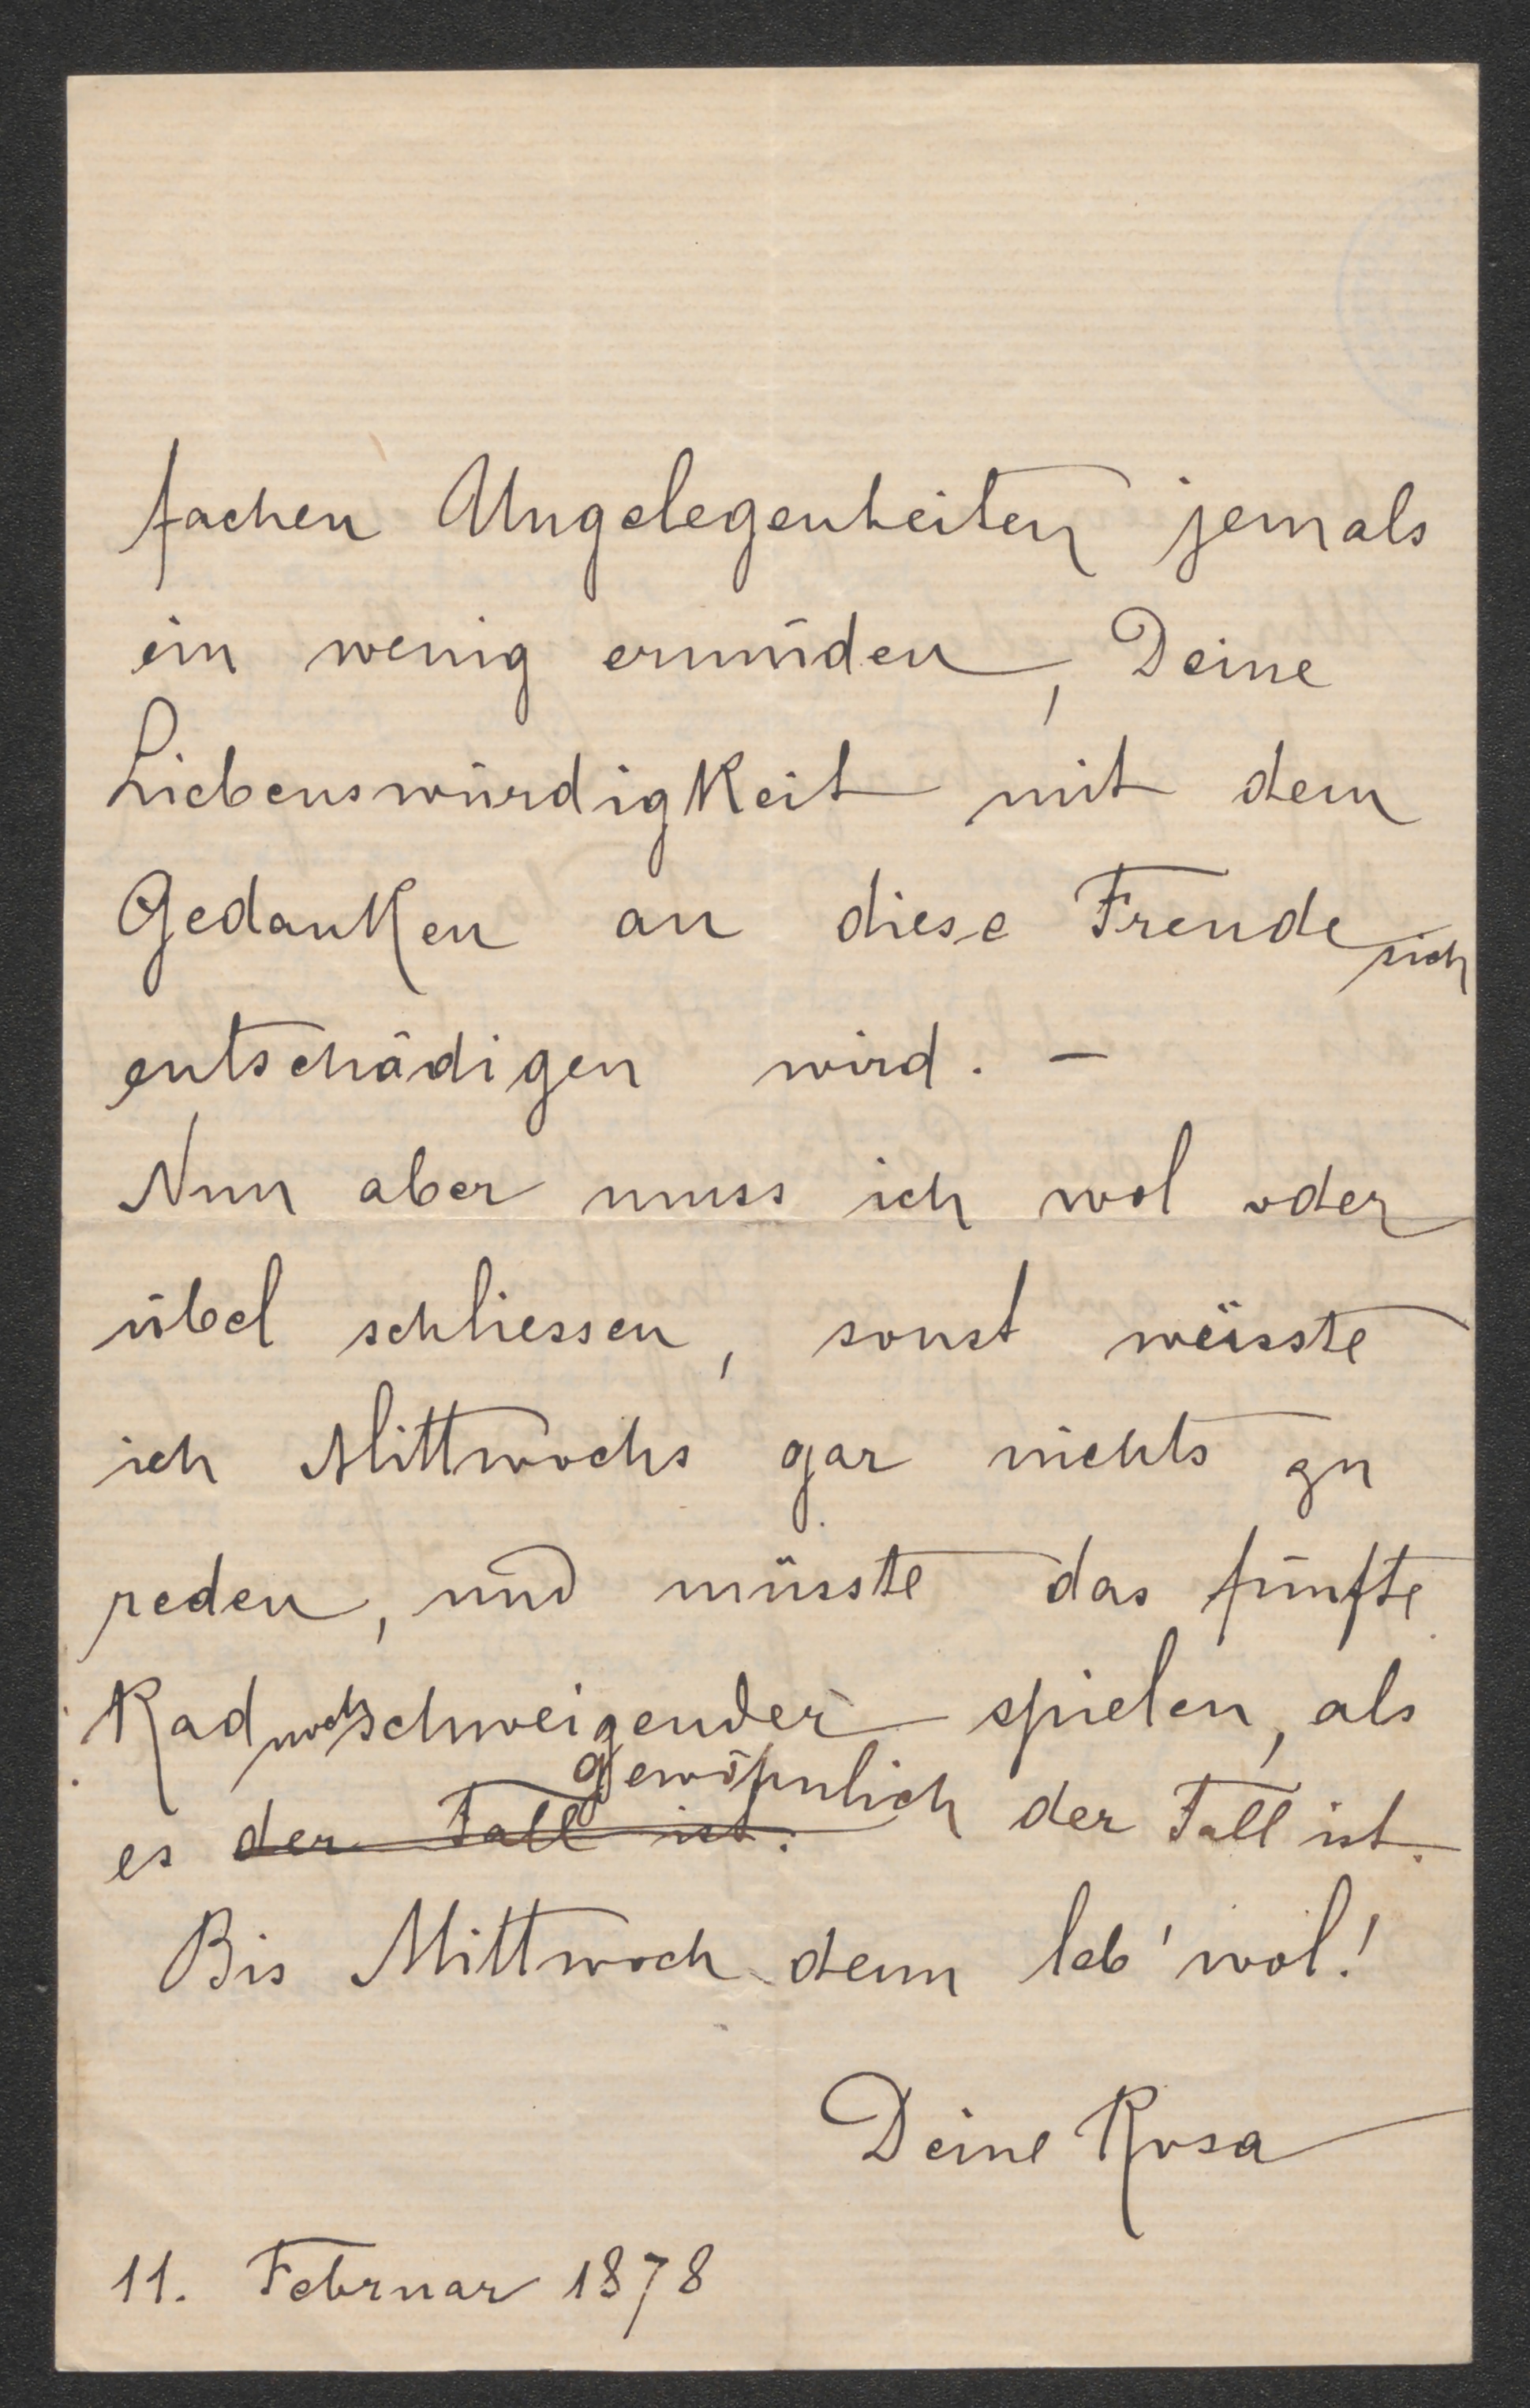 fachen Ungelegenheiten jemals
ein wenig ermüden, Deine
Liebenswürdigkeit mit dem
Gedanken an diese Freude sich
entschädigen wird. –
Nun aber muss ich wol oder
übel schliessen, sonst wüsste
ich Mittwochs gar nichts zu
reden, und müsste das fünfte
Rad noch schweigender spielen, als
es der Fall ist. gewöhnlich der Fall ist.
Bis Mittwoch denn leb' wol!
Deine Rosa
11. Februar 1878